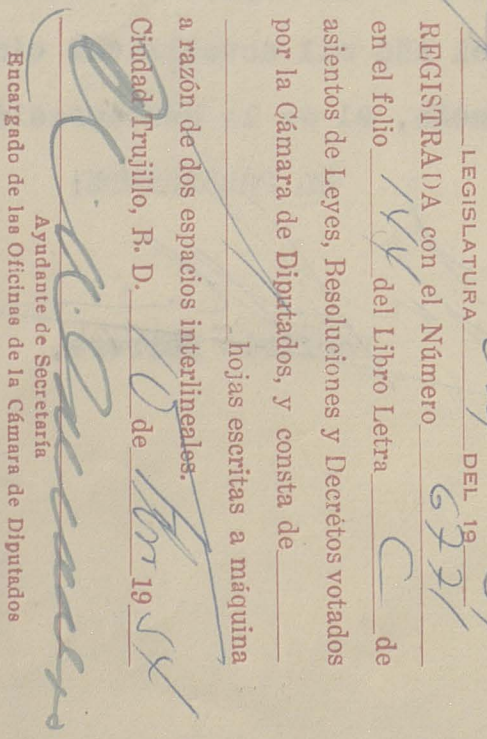 LEGISLATURA DEL 19
REGISTRADA con el Número 6771
en el folio 144 del Libro Letra C de
asientos de Leyes, Resoluciones y Decrétos votados
por la Cámara de Diputados, y consta de
hojas escritas a máquina
a razón de dos espacios interlineales.
Ciudad Trujillo, R. D. 10 de 19
Ayudante de Secretaría
Encargado de las Oficinas de la Cámara de Diputados